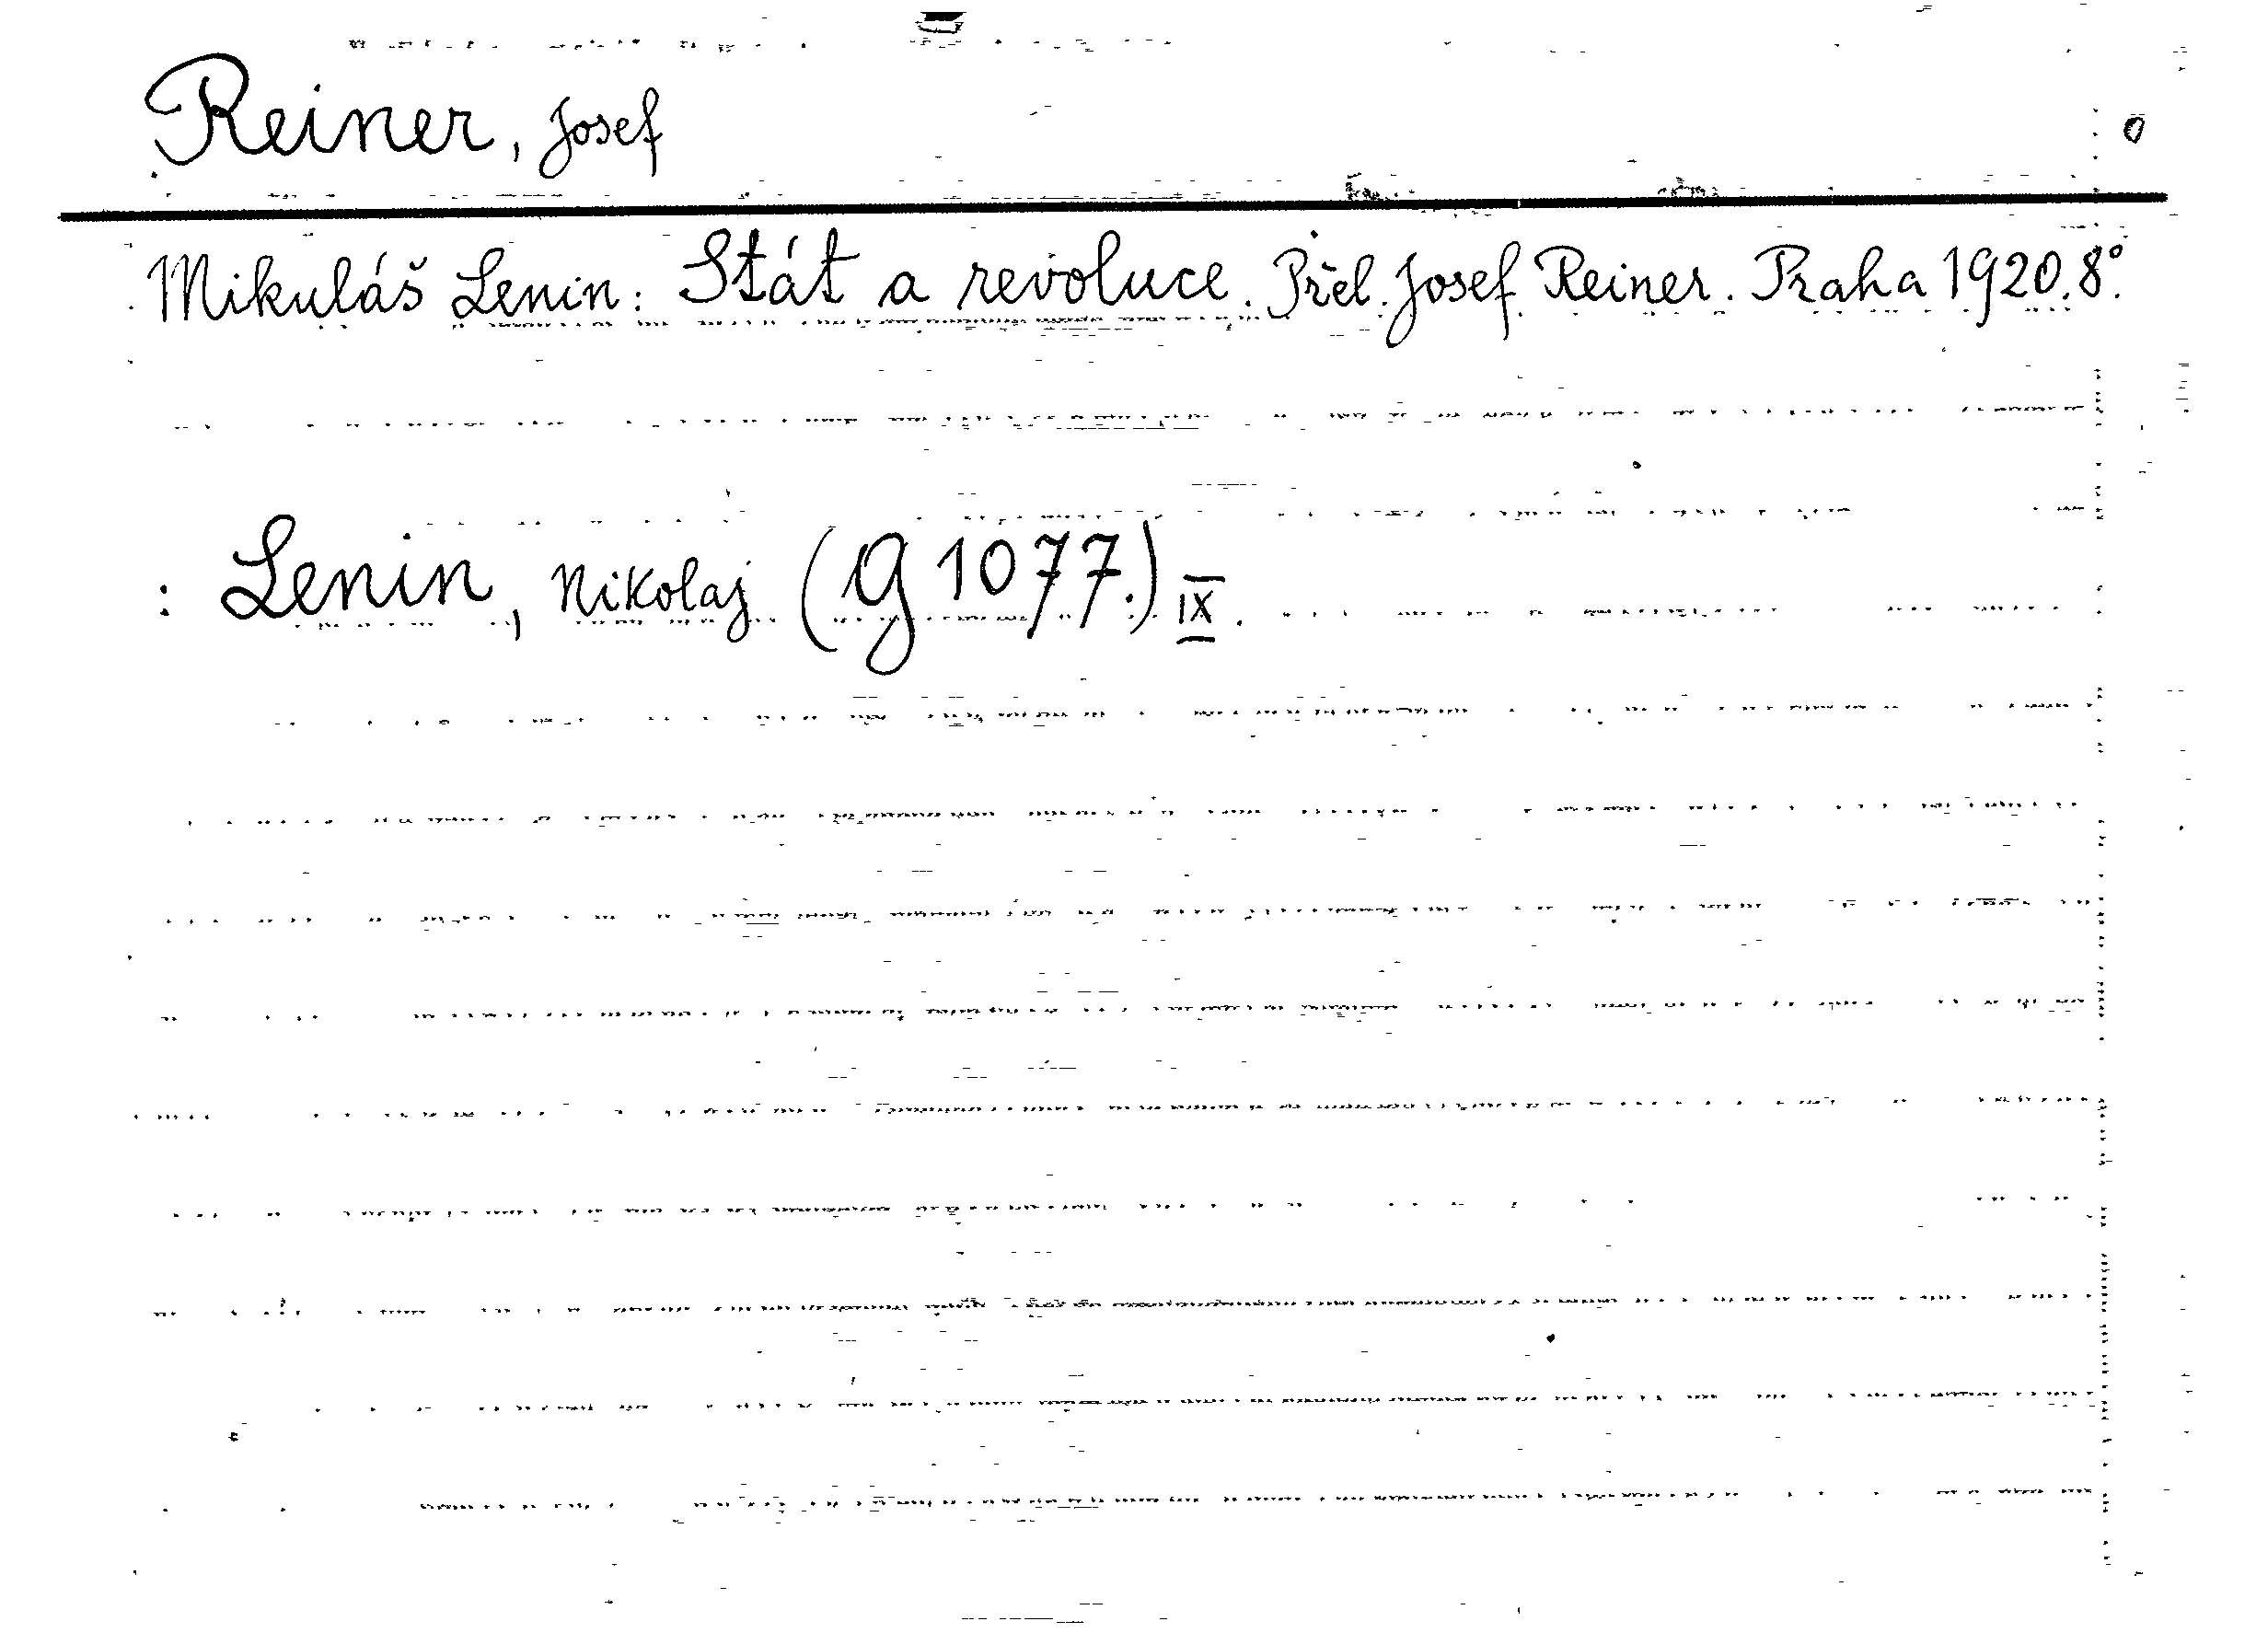 Reiner, Josef
Mikuláš Lenin: Stát a revoluce. Přel. Josef Reiner. Praha 1920. 8°.
: Lenin, Nikolaj (G 1077.) IX.